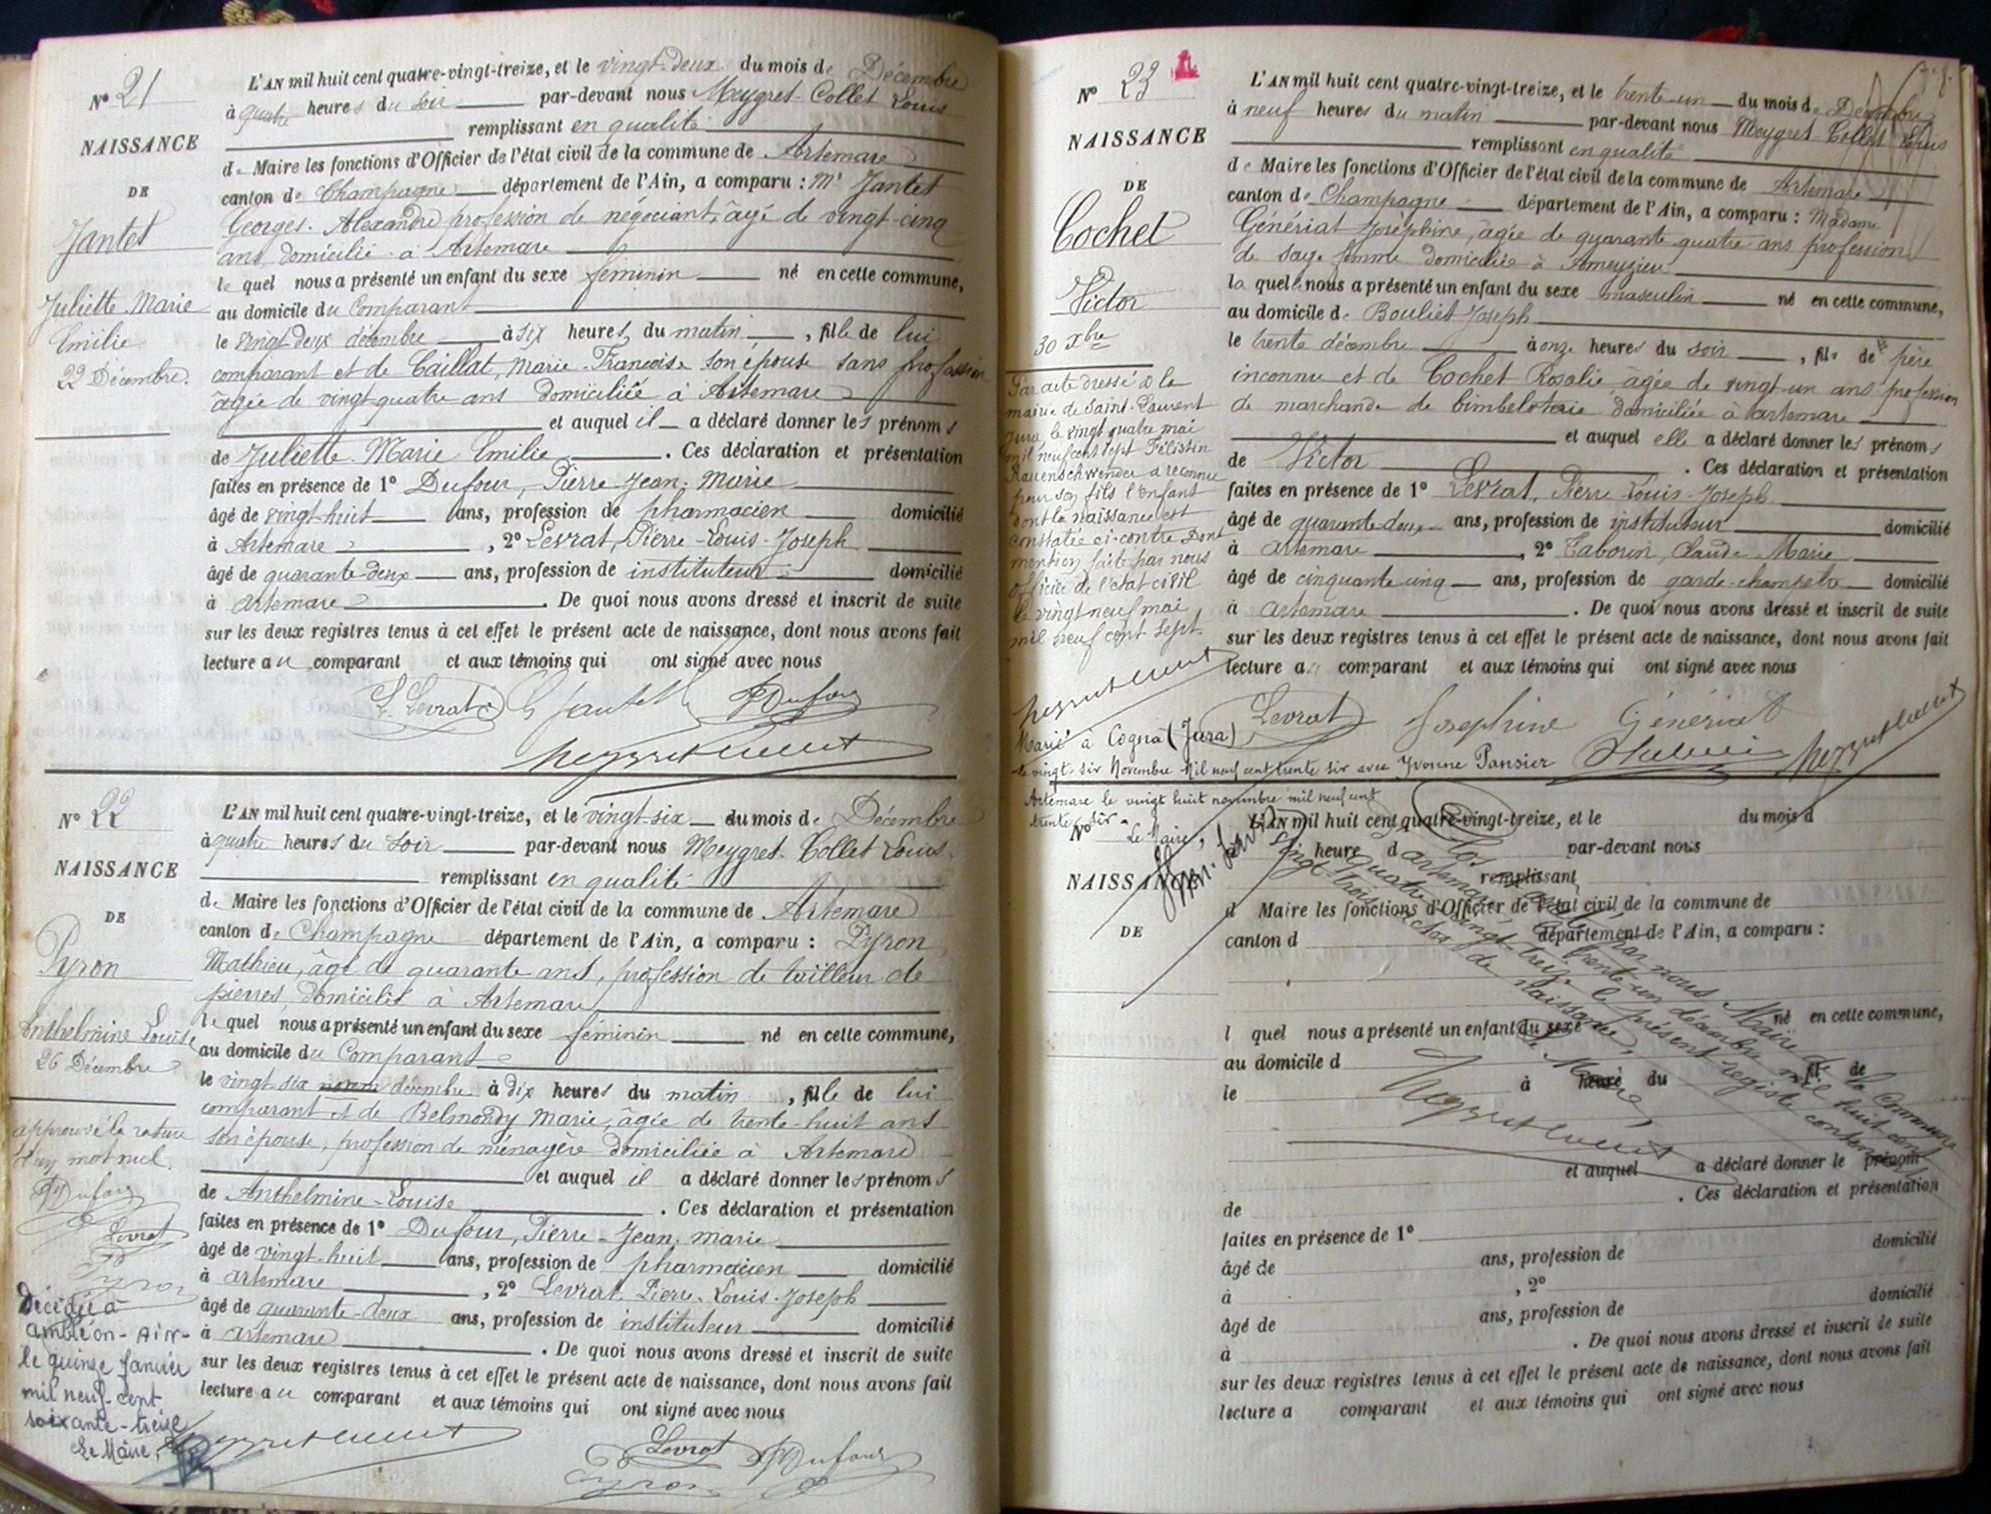 N° 21
NAISSANCE
DE
Jantet
Juliette Marie
Emilie
22 Décembre.
L'AN mil huit cent quatre-vingt-treize, et le vingt-deux du mois de Décembre
à quatre heures du soir par-devant nous Meygret-Collet Louis
remplissant en qualité
de Maire les fonctions d'Officier de l'état civil de la commune de Artemare
canton de Champagne département de l'Ain, a comparu : Mr Jantet
Georges-Alexandre profession de négociant, âgé de vingt-cinq
ans domicilié à Artemare
le quel nous a présenté un enfant du sexe féminin né en cette commune,
au domicile du Comparant
le vingt deux décembre à six heures du matin, fille de lui
comparant et de Caillat, Marie-Françoise son épouse sans profession
âgée de vingt quatre ans domiciliée à Artemare
et auquel il a déclaré donner les prénoms
de Juliette Marie Emilie. Ces déclaration et présentation
faites en présence de 1° Dufour, Pierre Jean-Marie
âgé de vingt-huit ans, profession de pharmacien domicilié
à Artemare, 2° Levrat, Pierre-Louis-Joseph
âgé de quarante-deux ans, profession de instituteur domicilié
à artemare. De quoi nous avons dressé et inscrit de suite
sur les deux registres tenus à cet effet le présent acte de naissance, dont nous avons fait
lecture au comparant et aux témoins qui ont signé avec nous
L. Levrat G Jantet P Dufour
Meygret-Collet
N° 22
NAISSANCE
DE
Pyron
Anthelmine Louise
26 Décembre
approuvé la rature
d'un mot nul.
P Dufour
Levrat
Pyron
Décédée à
Ambléon - Ain -
le quinze Janvier
mil neuf-cent
soixante-treize
Le Maire,
L'AN mil huit cent quatre-vingt-treize, et le vingt-six du mois de Décembre
à quatre heures du soir par-devant nous Meygret-Collet Louis
remplissant en qualité
de Maire les fonctions d'Officier de l'état civil de la commune de Artemare
canton de Champagne département de l'Ain, a comparu : Pyron
Mathieu, âgé de quarante ans, profession de tailleur de
pierres domicilié à Artemare
le quel nous a présenté un enfant du sexe féminin né en cette commune,
au domicile du Comparant
le vingt six décembre à dix heures du matin, fille de lui
comparant et de Belmondy Marie, âgée de trente-huit ans
son épouse, profession de ménagère domiciliée à Artemare
et auquel il a déclaré donner les prénoms
de Anthelmine-Louise. Ces déclaration et présentation
faites en présence de 1° Dufour, Pierre-Jean-marie
âgé de vingt-huit ans, profession de pharmacien domicilié
à artemare, 2° Levrat Pierre-Louis-Joseph
âgé de quarante-deux ans, profession de instituteur domicilié
à artemare. De quoi nous avons dressé et inscrit de suite
sur les deux registres tenus à cet effet le présent acte de naissance, dont nous avons fait
lecture au comparant et aux témoins qui ont signé avec nous
Meygret-Collet
Levrat P Dufour
Pyron
N° 23
NAISSANCE
DE
Cochet
Victor
30 Xbre
Par acte dressé à la
mairie de Saint-Laurent
Jura, le vingt quatre mai
mil neuf cent sept Félistin
Rauenschwender a reconnu
pour son fils l'enfant
dont la naissance est
constatée ci-contre Dont
mention faite par nous
officier de l'état civil
le vingt neuf mai
mil neuf cent sept.
Meygret-Collet
L'AN mil huit cent quatre-vingt-treize, et le trente-un du mois de Décembre
à neuf heures du matin par-devant nous Meygret Collet Louis
remplissant en qualité
de Maire les fonctions d'Officier de l'état civil de la commune de Artemare
canton de Champagne département de l'Ain, a comparu : Madame
Génériat Joséphine, âgée de quarante quatre ans profession
de sage femme domiciliée à Ameyzieu
la quelle nous a présenté un enfant du sexe masculin né en cette commune,
au domicile de Bouliet Joseph
le trente décembre à onze heures du soir, fils de père
inconnu et de Cochet Rosalie âgée de vingt-un ans profession
de marchande de bimbeloterie domiciliée à artemare
et auquel elle a déclaré donner les prénoms
de Victor. Ces déclaration et présentation
faites en présence de 1° Levrat, Pierre-Louis-Joseph
âgé de quarante-deux ans, profession de instituteur domicilié
à artemare, 2° Tabouin, Claude Marie
âgé de cinquante cinq ans, profession de garde-champêtre domicilié
à artemare. De quoi nous avons dressé et inscrit de suite
sur les deux registres tenus à cet effet le présent acte de naissance, dont nous avons fait
lecture a comparant et aux témoins qui ont signé avec nous
Levrat Josephine Génériat
Meygret-Collet
Marié à Cogna (Jura)
le vingt-six Novembre Mil neuf cent trente six avec Yvonne Pansier
Artemare le vingt huit novembre mil neuf cent
trente six.
Le Maire,
N°
NAISSANCE
DE
L'AN mil huit cent quatre-vingt-treize, et le du mois d
à heure d par-devant nous
remplissant
d Maire les fonctions d'Officier de l'état civil de la commune de
canton d département de l'Ain, a comparu :
l quel nous a présenté un enfant du sexe né en cette commune,
au domicile d
le à heure du, fil de
et auquel a déclaré donner le prénom
de. Ces déclaration et présentation
faites en présence de 1°
âgé de ans, profession de domicilié
à, 2°
âgé de ans, profession de domicilié
à. De quoi nous avons dressé et inscrit de suite
sur les deux registres tenus à cet effet le présent acte de naissance, dont nous avons fait
lecture a comparant et aux témoins qui ont signé avec nous
Clos par nous Maire de la Commune
d'artemare le trente-un décembre mil huit cent
quatre vingt-treize le présent registre contenant
vingt-trois actes de naissance,
Le Maire,
Meygret-Collet